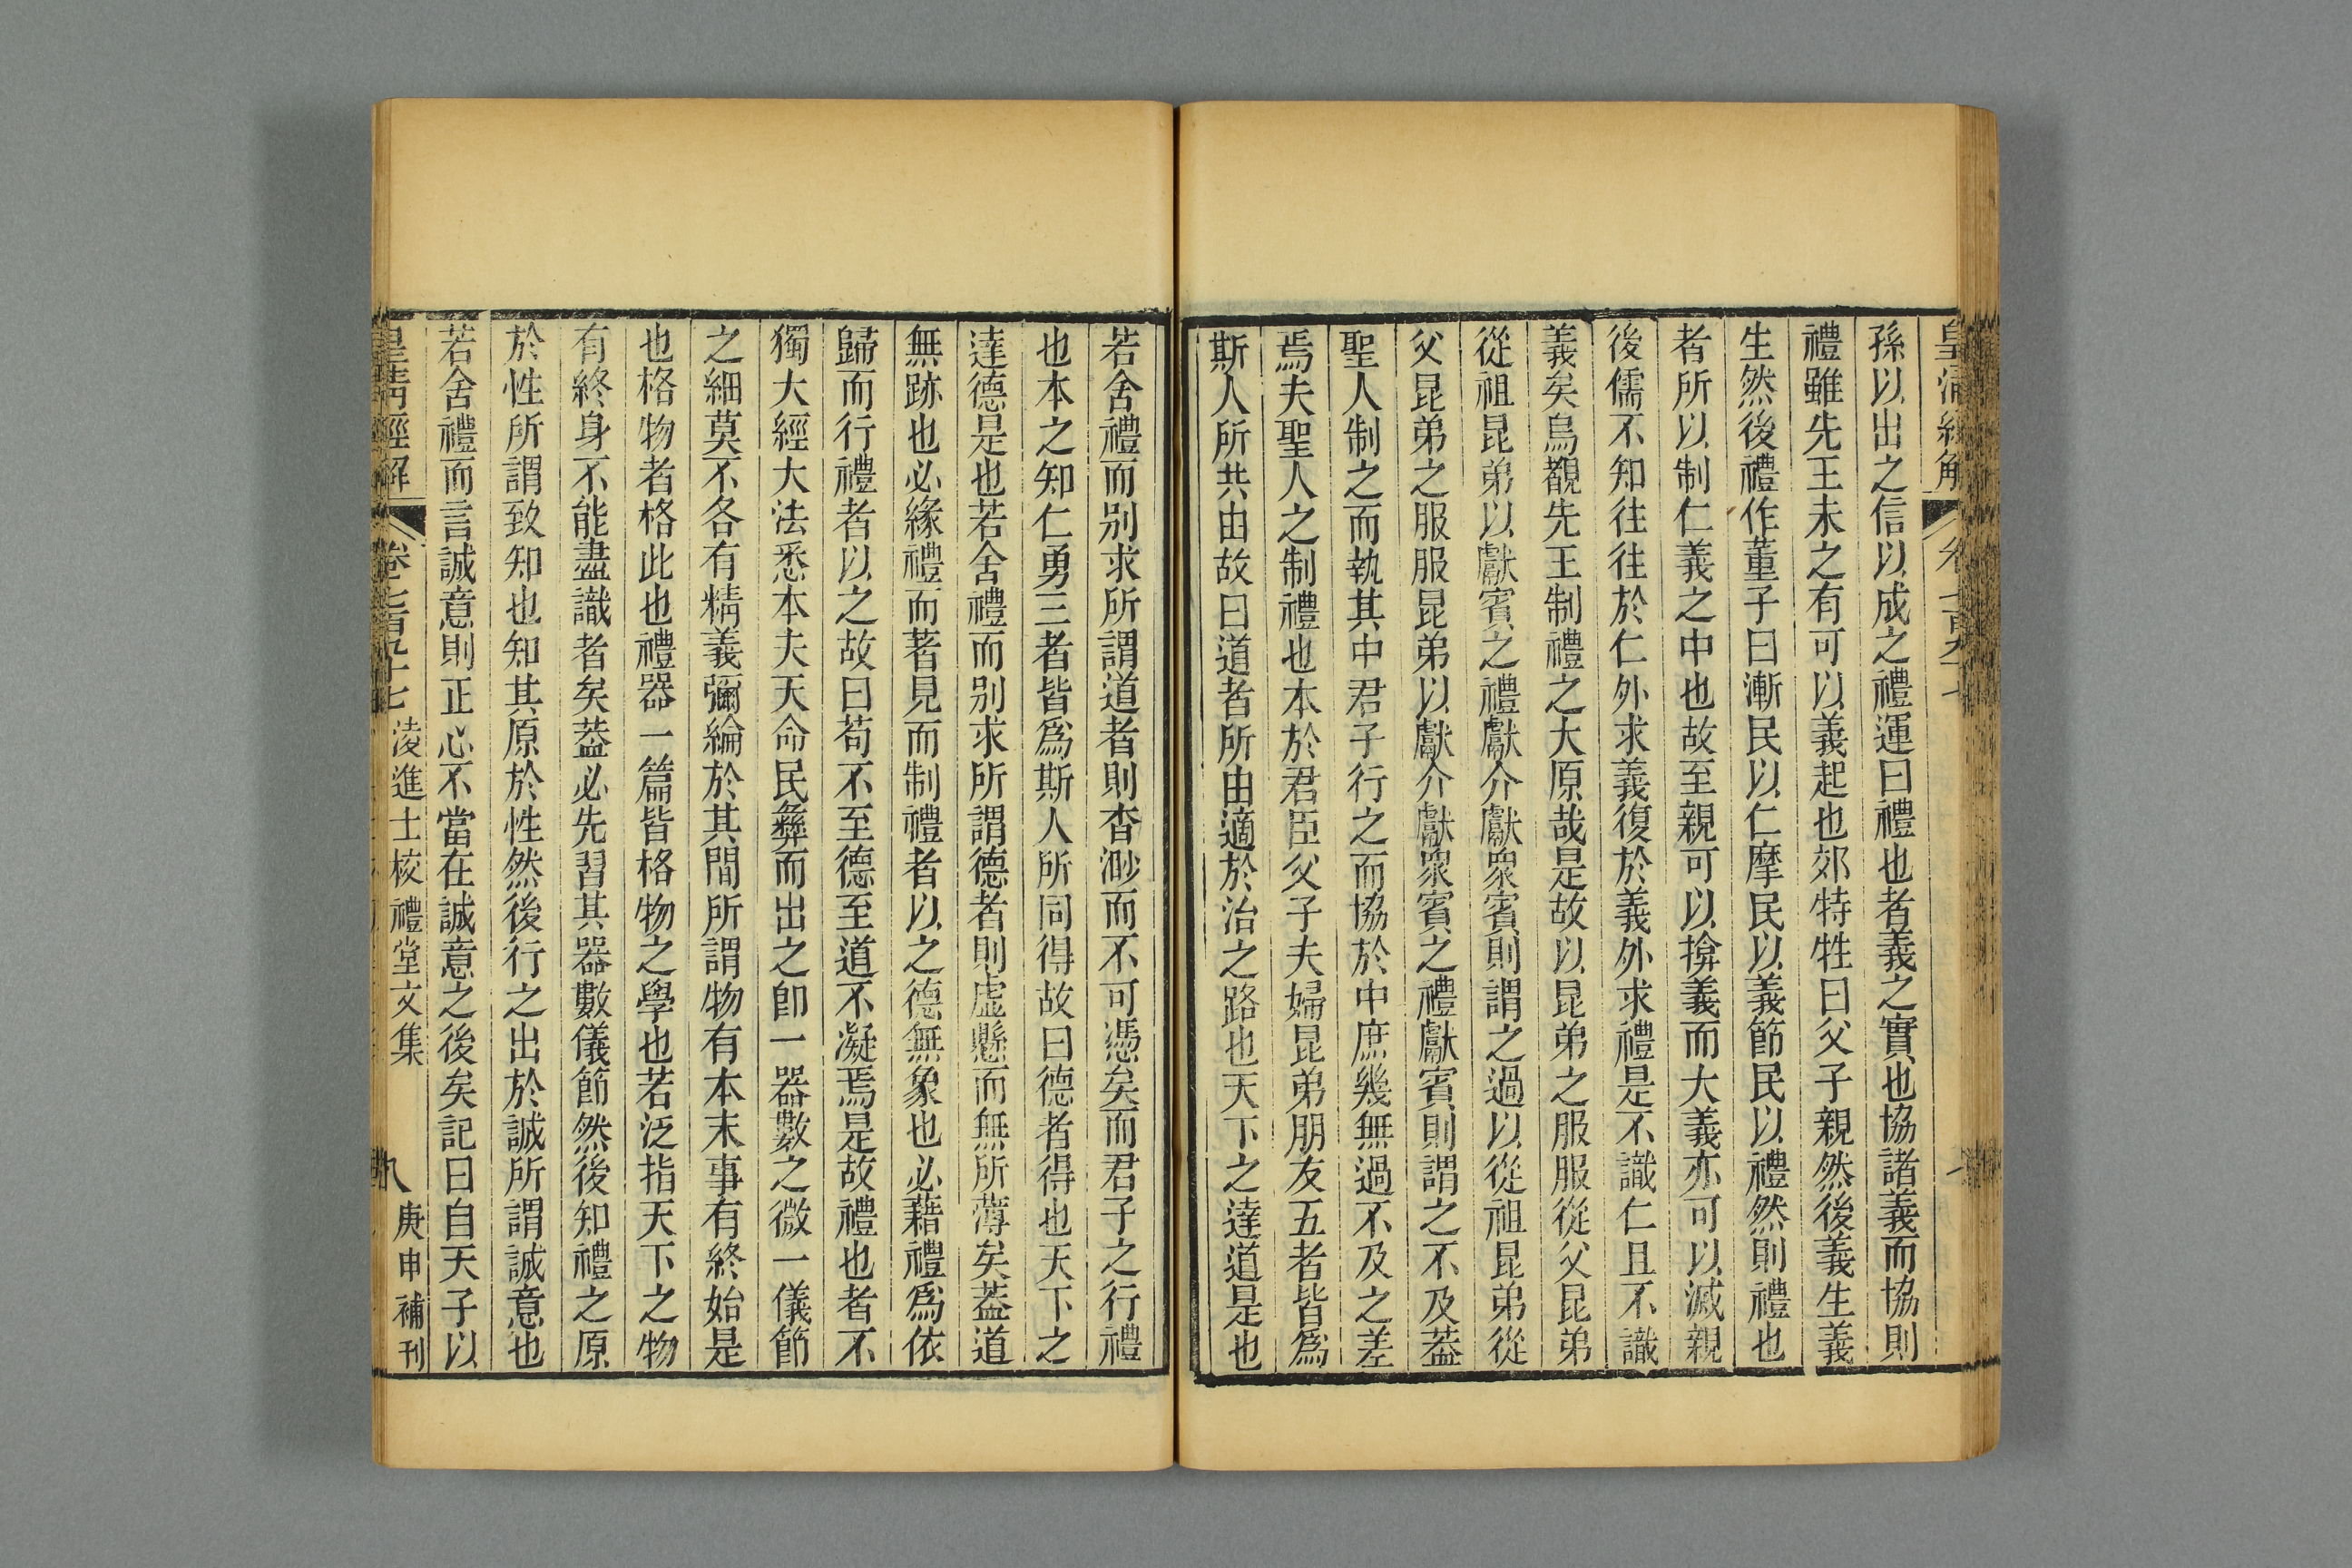 皇清經解
卷七百九十七
孫以出之信以成之禮運曰禮也者義之實也協諸義而協則
禮雖先王未之有可以義起也郊特牲曰父子親然後義生義
生然後禮作董子曰漸民以仁摩民以義節民以禮然則禮也
者所以制仁義之中也故至親可以揜義而大義亦可以滅親
後儒不知往往於仁外求義復於義外求禮是不識仁且不識
義矣烏觀先王制禮之大原哉是故以昆弟之服服從父昆弟
從祖昆弟以獻賓之禮獻介獻衆賓則謂之過以從祖昆弟從
父昆弟之服服昆弟以獻介獻衆賓之禮獻賓則謂之不及葢
聖人制之而執其中君子行之而協於中庶幾無過不及之差
焉夫聖人之制禮也本於君臣父子夫婦昆弟朋友五者皆爲
斯人所共由故曰道者所由適於治之路也天下之達道是也
若舍禮而别求所謂道者則杳渺而不可憑矣而君子之行禮
也本之知仁勇三者皆爲斯人所同得故曰德者得也天下之
達德是也若舍禮而别求所謂德者則虛懸而無所薄矣葢道
無跡也必緣禮而著見而制禮者以之德無象也必藉禮爲依
歸而行禮者以之故曰苟不至德至道不凝焉是故禮也者不
獨大經大法悉本夫天命民彝而出之卽一器數之微一儀節
之細莫不各有精義彌綸於其間所謂物有本末事有終始是
也格物者格此也禮器一篇皆格物之學也若泛指天下之物
有終身不能盡識者矣葢必先習其器數儀節然後知禮之原
於性所謂致知也知其原於性然後行之出於誠所謂誠意也
若舍禮而言誠意則正心不當在誠意之後矣記曰自天子以
皇清經解
卷七百九十七
淩進士校禮堂文集
八
庚申補刊